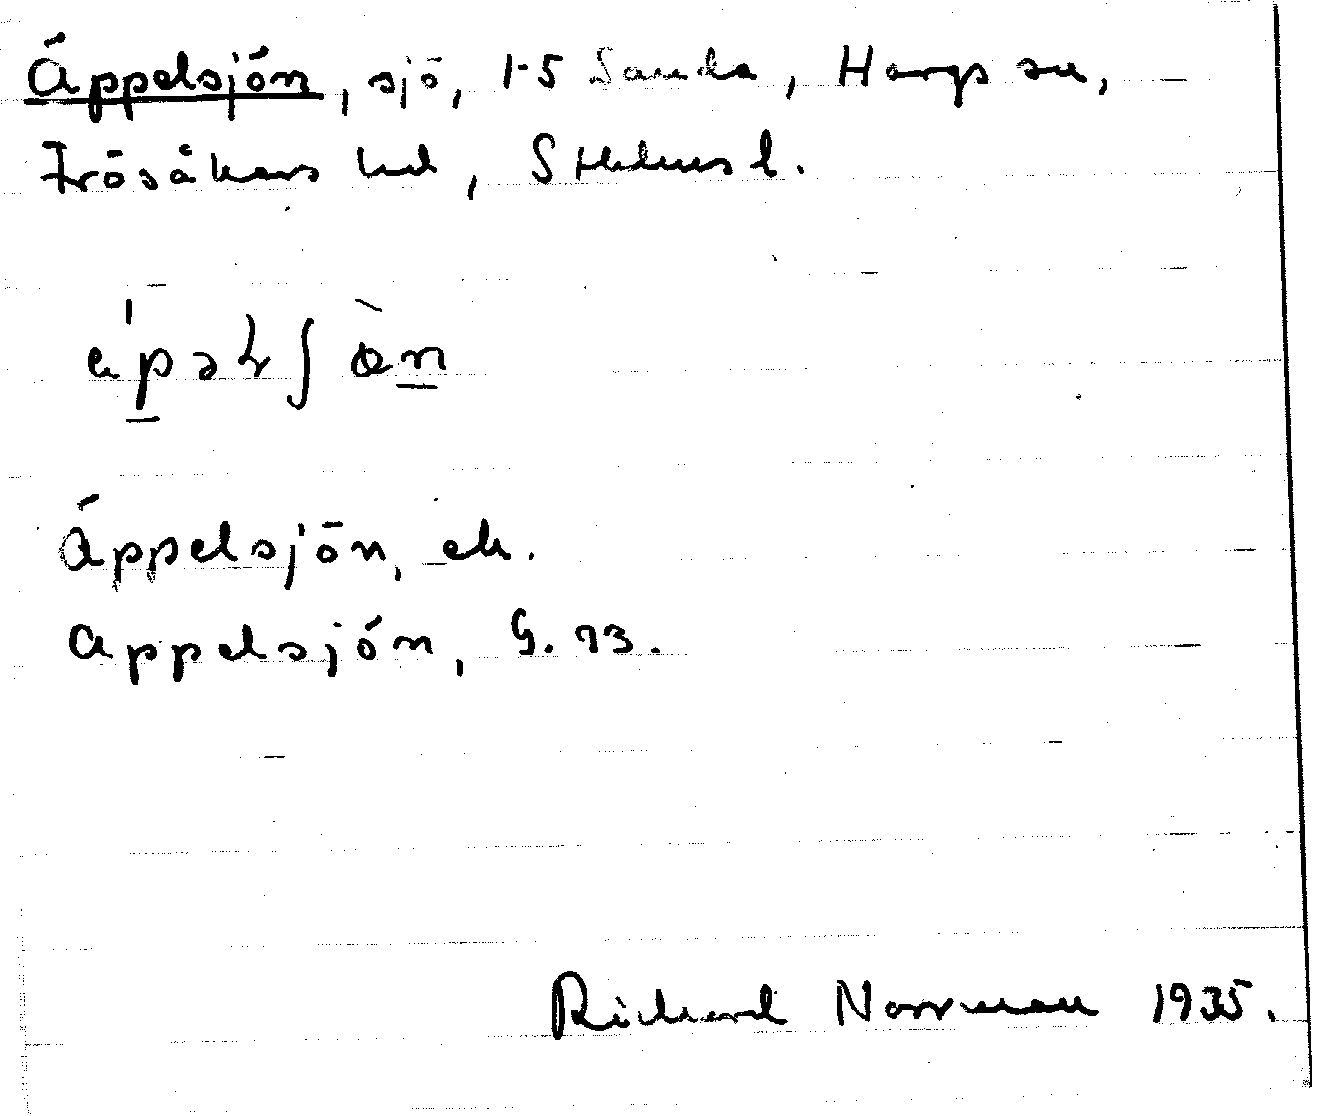 Äppelsjön, sjö, 1-5 Sanda, Hargs sn,
Frösåkers hd, Sthlms l.
Äppelsjön, ek.
Appelsjön, G. 73.
Richard Norrman 1935.